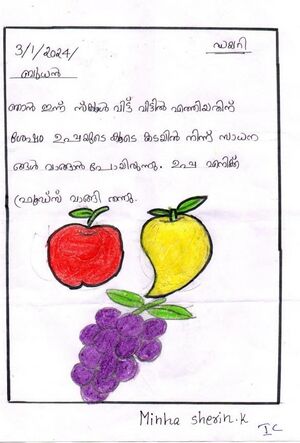 ഡയറി
3/1/2024/
ബുധൻ
ഞാൻ ഇന്ന് സ്കൂൾ വിട്ട് വീട്ടിൽ എത്തിയതിന്
ശേഷം ഉപ്പയുടെ കൂടെ കടയിൽ നിന്ന് സാധന
ങ്ങൾ വാങ്ങാൻ പോയിരുന്നു. ഉപ്പ എനിക്ക്
ഫ്രൂട്സ് വാങ്ങി തന്നു.
Minha sherin.k
I C